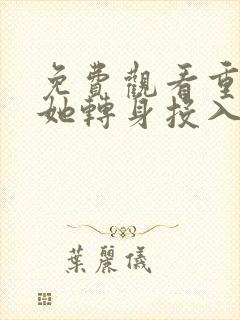 免費觀看重
她轉身投入
葉麗儀